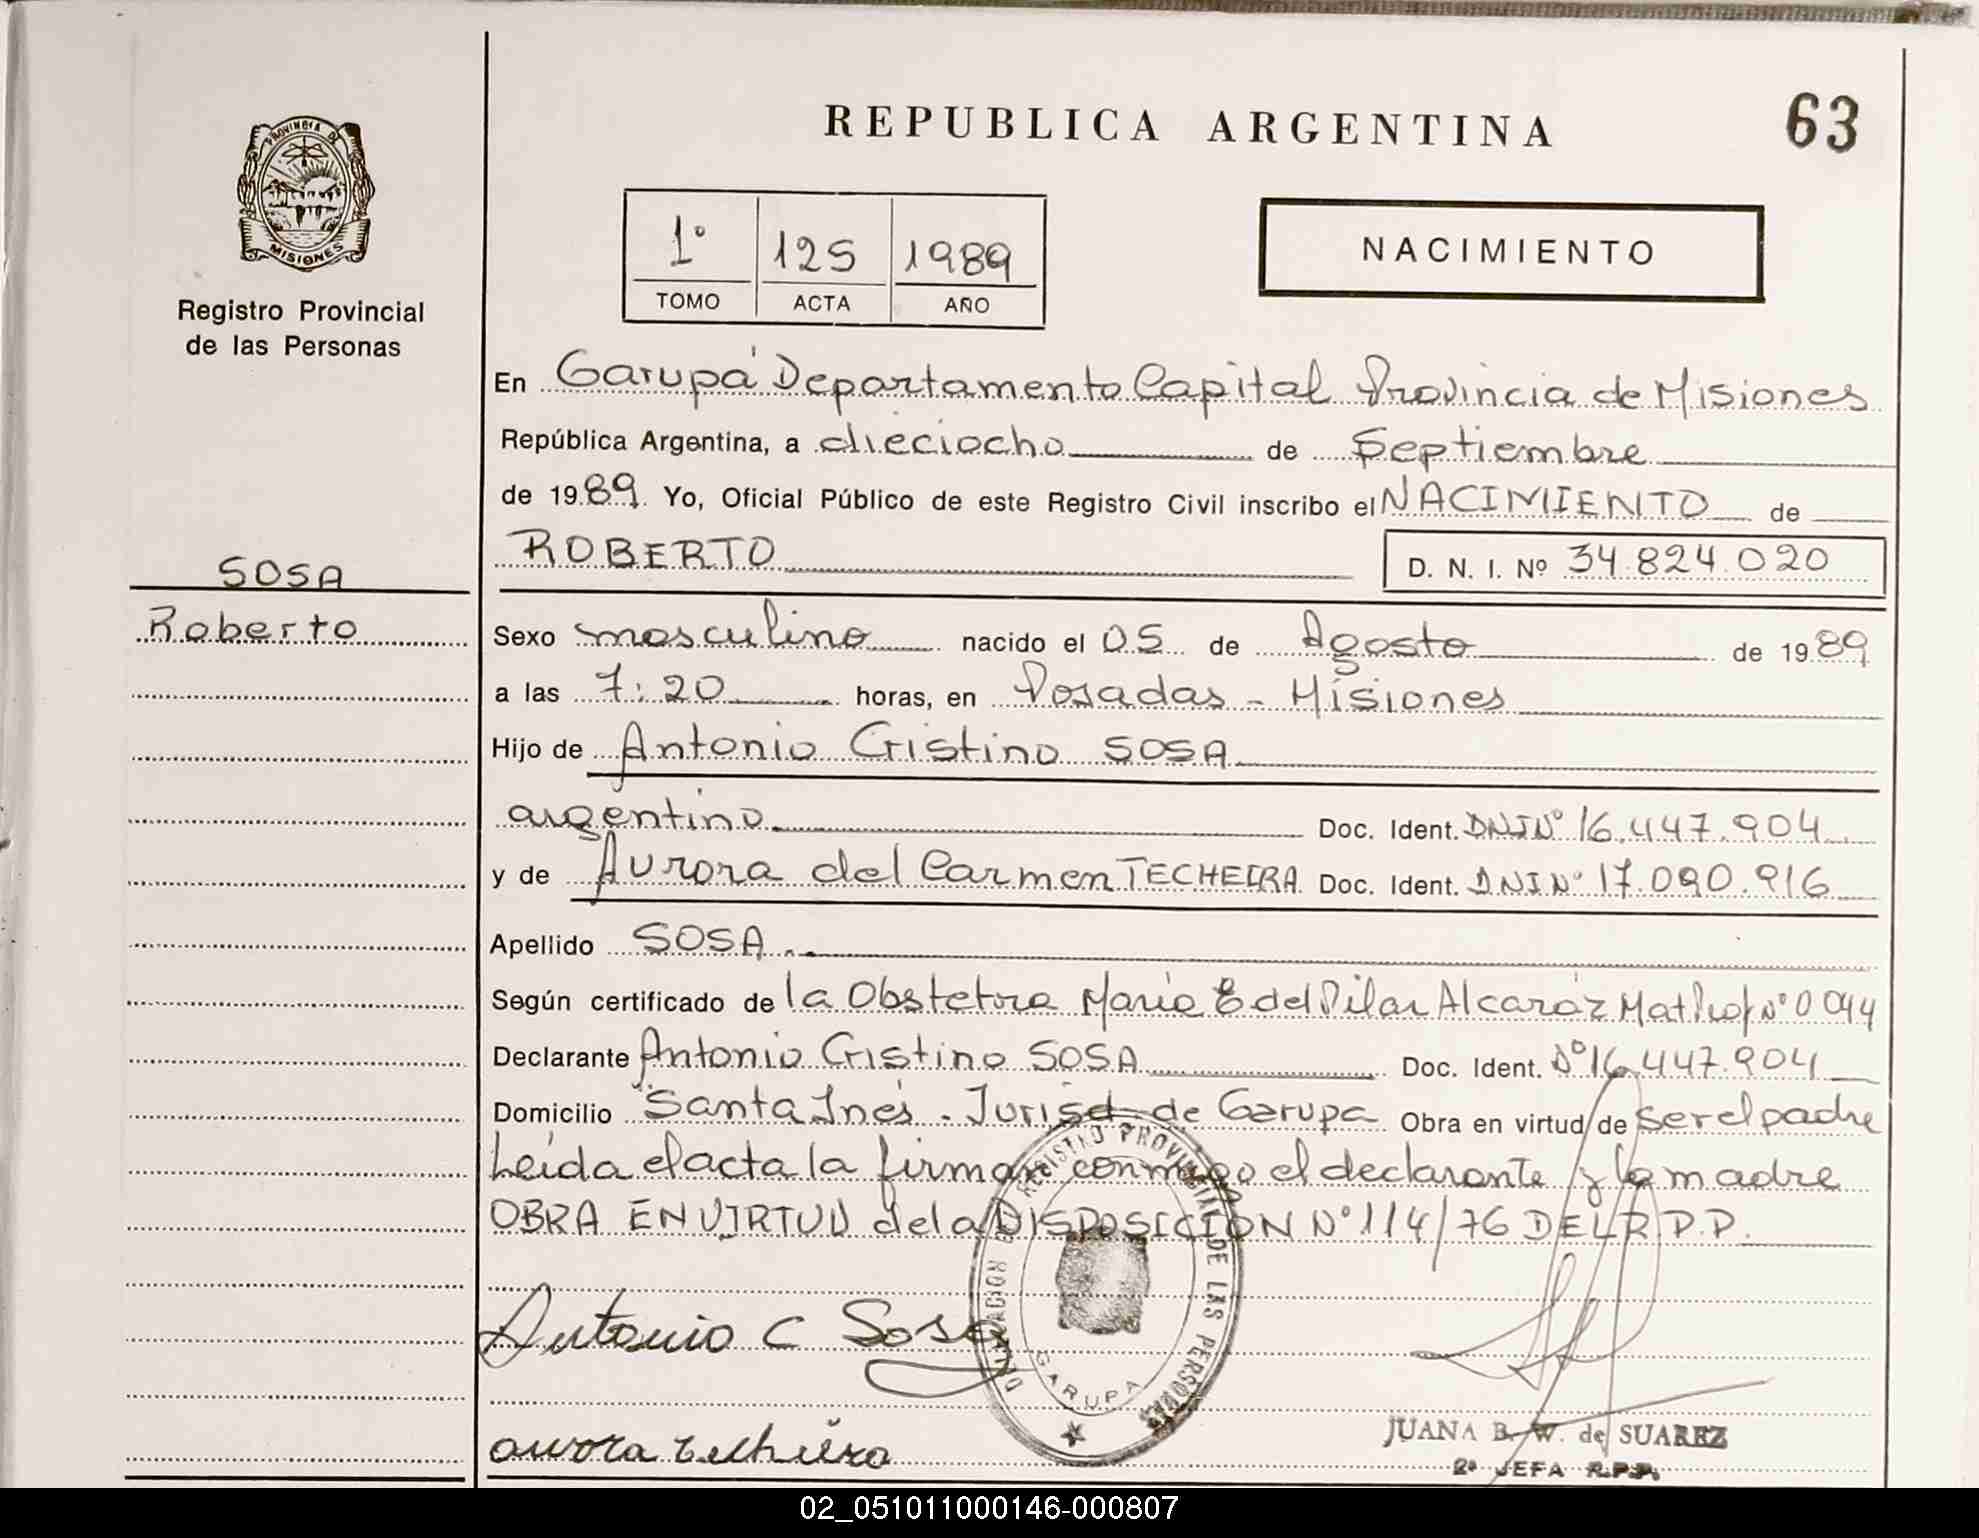 REPUBLICA ARGENTINA
63
PROVINCIA DE
MISIONES
Registro Provincial
de las Personas
1° 125 1989
TOMO ACTA AÑO
NACIMIENTO
En Garupá Departamento Capital Provincia de Misiones
República Argentina, a dieciocho de Septiembre
de 1989. Yo, Oficial Público de este Registro Civil inscribo el NACIMIENTO de
ROBERTO D. N. I. Nº 34.824.020
SOSA
Roberto
Sexo masculino nacido el 05 de Agosto de 1989
a las 7:20 horas, en Posadas - Misiones
Hijo de Antonio Cristino SOSA
argentino Doc. Ident. DNI N° 16.447.904
y de Aurora del Carmen TECHEIRA Doc. Ident. DNI N° 17.090.916
Apellido SOSA
Según certificado de la Obstetra María E del Pilar Alcaráz Mat Prof N° 0044
Declarante Antonio Cristino SOSA Doc. Ident. N° 16.447.904
Domicilio Santa Inés - Jurisd. de Garupa Obra en virtud de ser el padre
Leída el acta la firman conmigo el declarante y la madre
OBRA EN VIRTUD de la DISPOSICION N° 114/76 DEL R.P.P.
Antonio C Sosa
REGISTRO PROVINCIAL DE LAS PERSONAS
GARUPA
aurora techeira
JUANA B. W. de SUAREZ
2ª JEFA R.P.P.
02_051011000146-000807